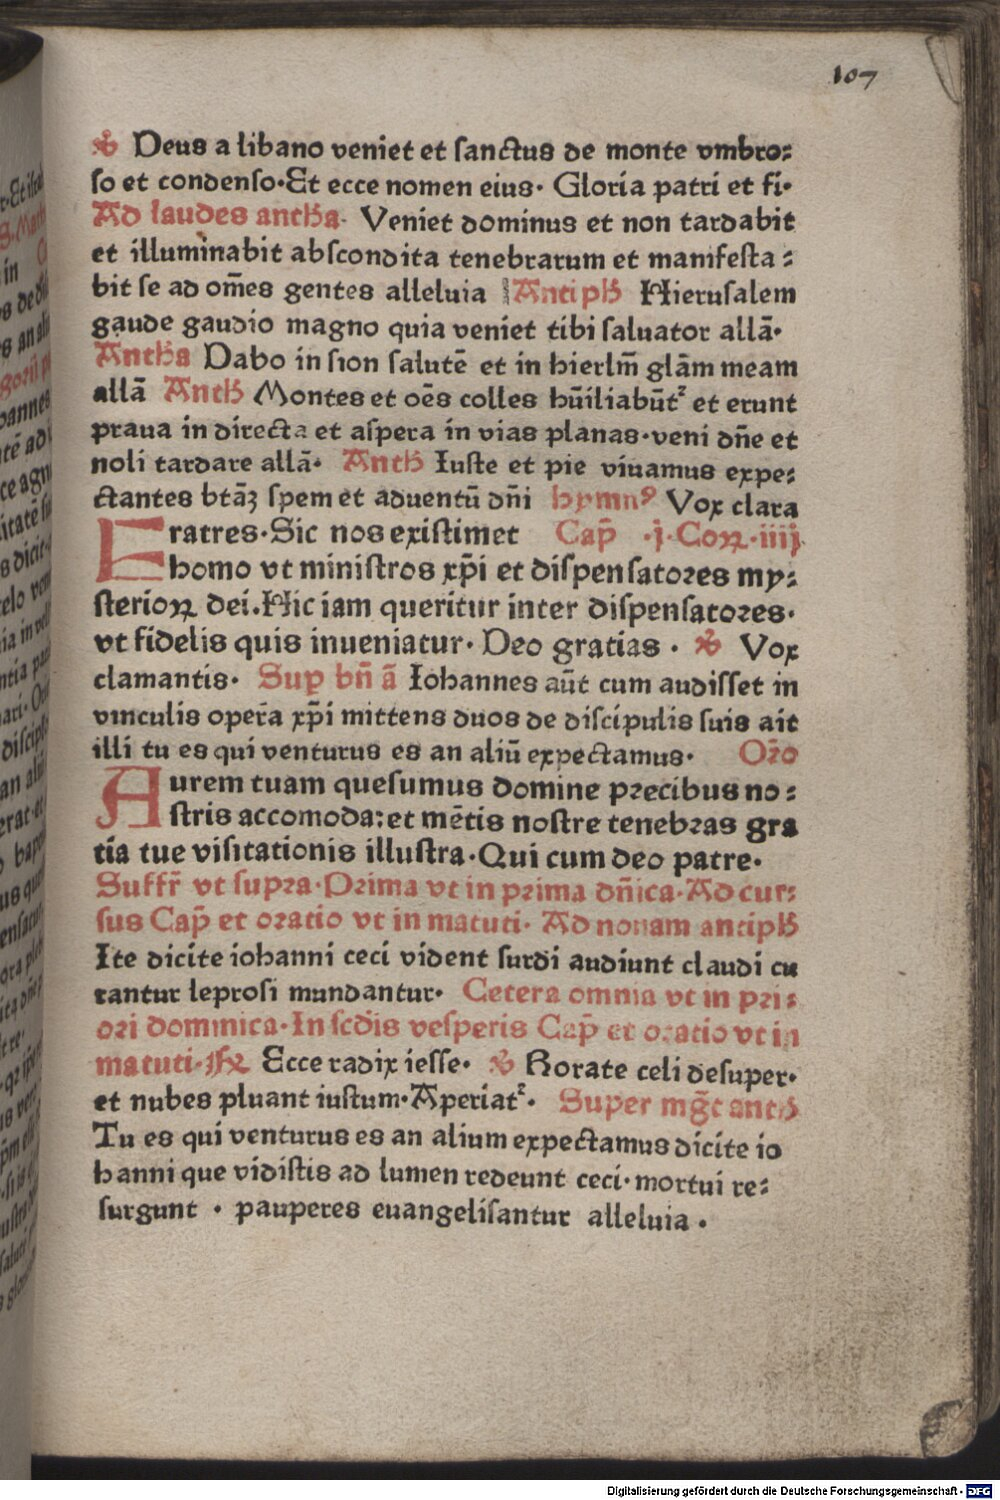 107
℣ Deus a libano veniet et ſanctus de monte vmbro⸗
ſo et condenſo·Et ecce nomen eius· Gloria patri et fi·
Ad laudes antħa· Veniet dominus et non tardabit
et illuminabit abſcondita tenebrarum et manifeſta⸗
bit ſe ad om̄es gentes alleluia Antipħ Hieruſalem
gaude gaudio magno quia veniet tibi ſaluator allā·
Antħa Dabo in sion ſalutē et in hierlm̄ glām meam
allā Antħ Montes et oēs colles hūiliabūtᷣ et erunt
praua in directa et aſpera in vias planas·veni dn̄e et
noli tardare allā· Antħ Iuſte et pie viuamus expe⸗
ctantes btāꝫ ſpem et aduentū dn̄i hymnꝰ Vox clara
Fratres·Sic nos exiſtimet Cap̄ ·j·Coꝝ·iiij·
homo vt miniſtros xp̄i et diſpenſatoꝛes my⸗
ſterioꝝ dei.Hic iam queritur inter diſpenſatoꝛes·
vt fidelis quis inueniatur· Deo gratias · ℣ Vox
clamantis· Suꝑ bn̄ ā Iohannes aūt cum audiſſet in
vinculis opera xp̄i mittens duos de diſcipulis ſuis ait
illi tu es qui venturus es an aliū expectamus· Oꝛ̄o
Aurem tuam queſumus domine pꝛecibus no⸗
ſtris accomoda:et mētis noſtre tenebꝛas gra
tia tue viſitationis illuſtra·Qui cum deo patre·
Suffr̄ vt ſupꝛa·Pꝛima vt in pꝛima dn̄ica·Ad cur⸗
ſus Cap̄ et oꝛatio vt in matuti· Ad nonam antipħ
Ite dicite iohanni ceci vident ſurdi audiunt claudi cu
rantur leproſi mundantur· Cetera omnia vt in pꝛi⸗
oꝛi dominica·In ſcd̄is veſperis Cap̄ et oꝛatio vt in
matuti· Ecce radix ieſſe· ℣ Rorate celi deſuper·
et nubes pluant iuſtum·Aperiatᷣ· Super mḡt antħ
Tu es qui venturus es an alium expectamus dicite io
hanni que vidiſtis ad lumen redeunt ceci·mortui re⸗
ſurgunt · pauperes euangeliſantur alleluia ·
Digitalisierung gefördert durch die Deutsche Forschungsgemeinschaft · DFG